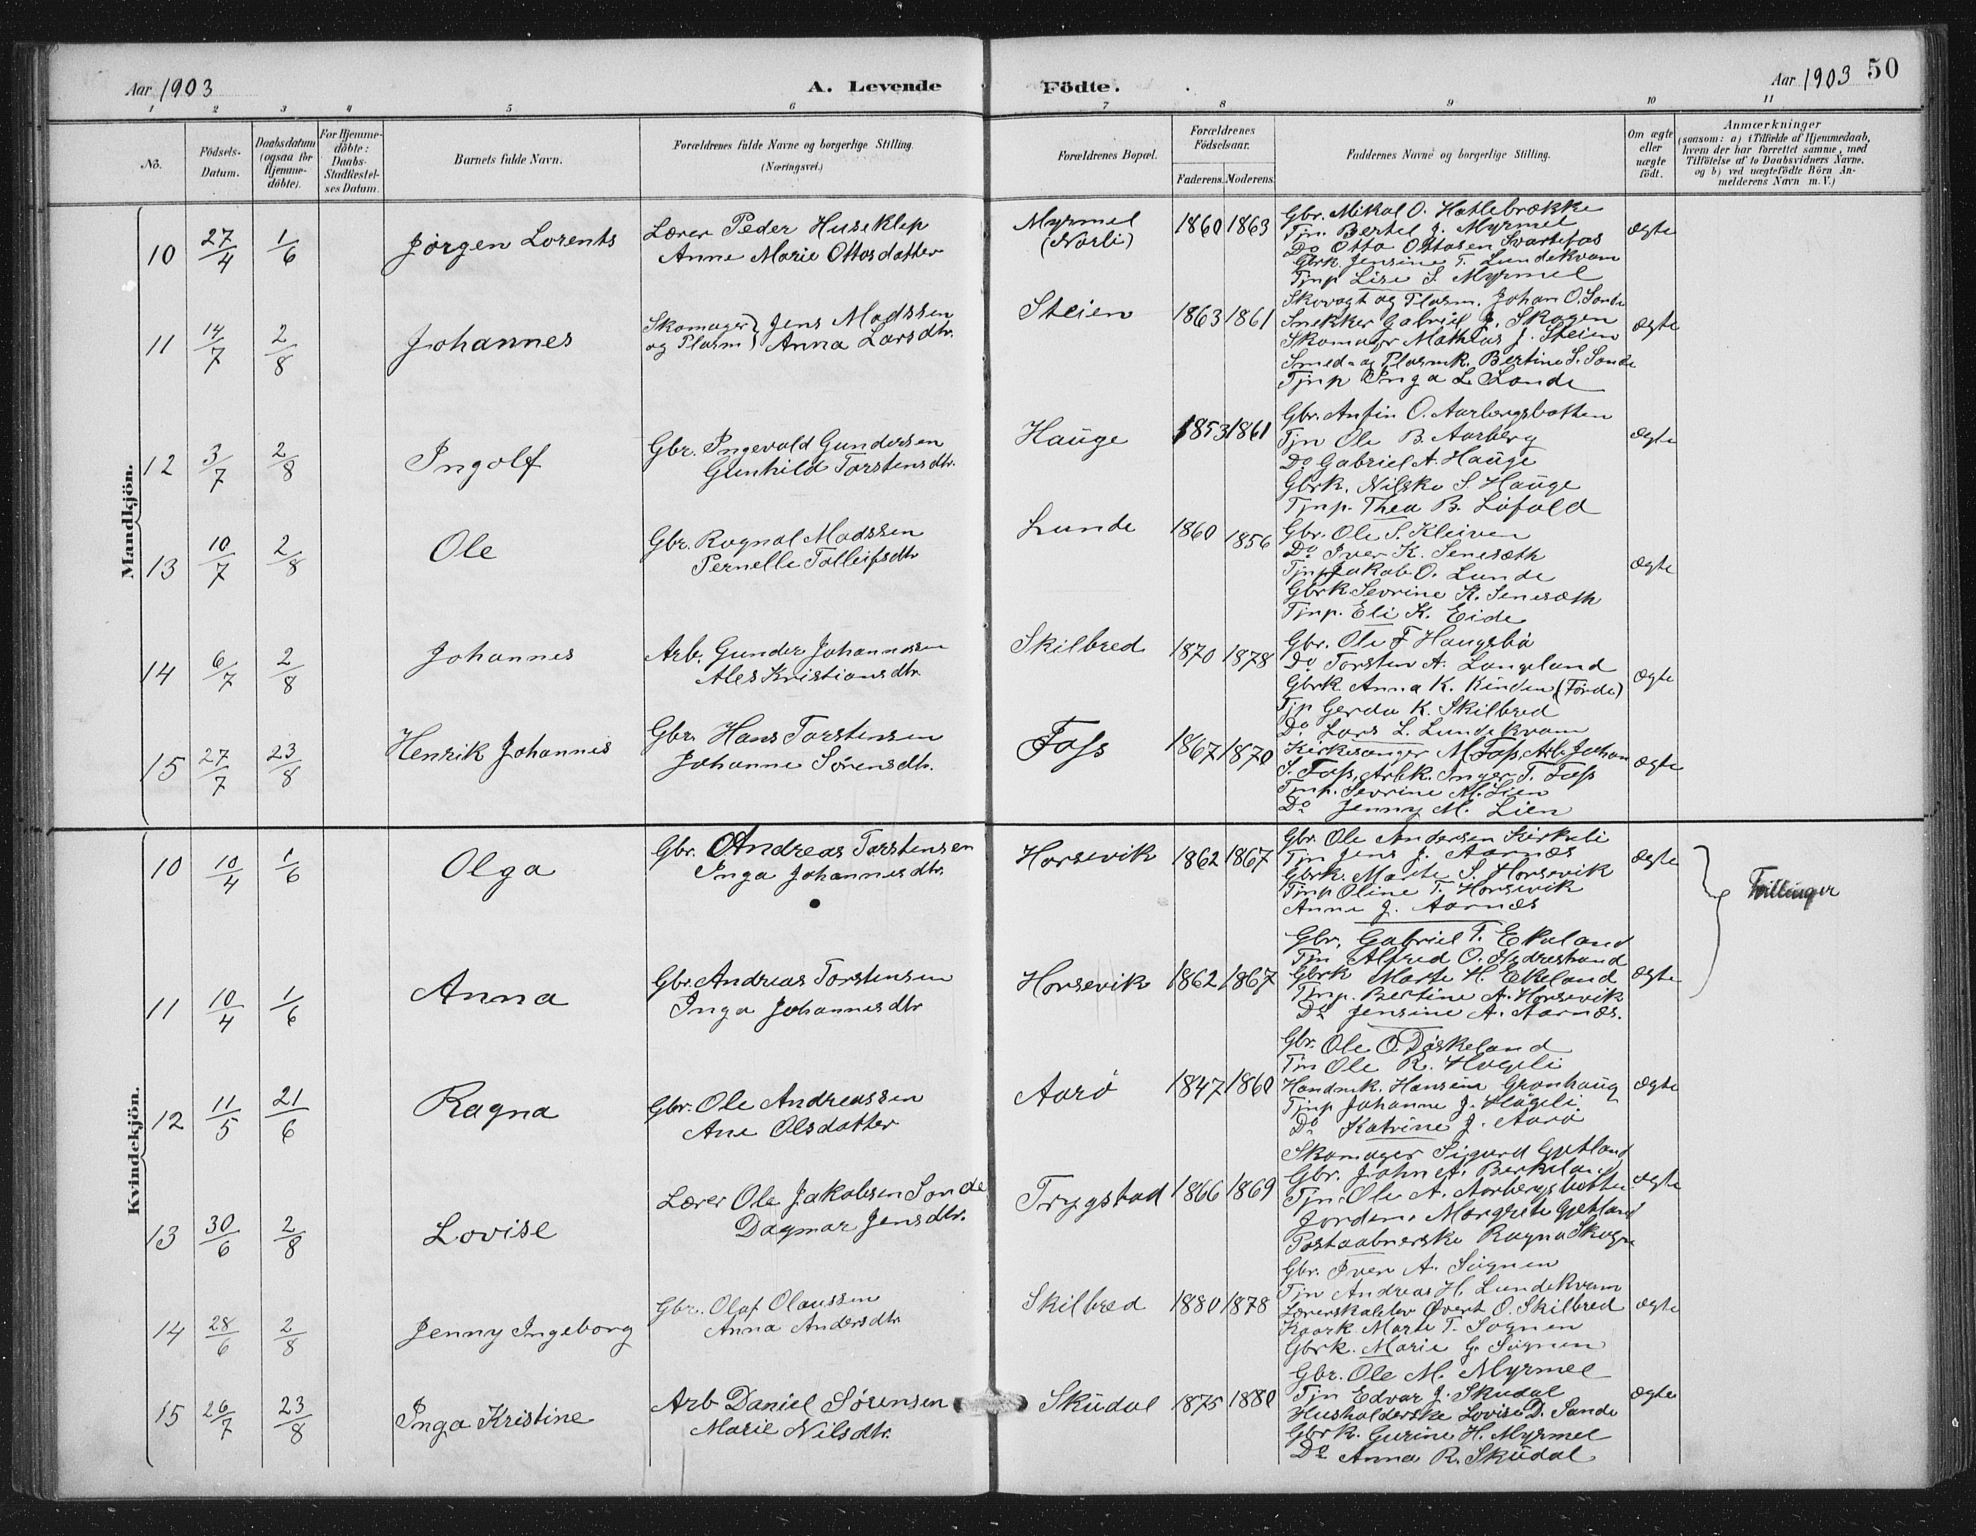 Aar 1903
A. Levende
Födte.
Aar 1903 50
1 2 3 4 5 6 7 8 9 10 11
No.
Födsels-Datum.
Daabsdatum (ogsaa for Hjemme-döbte).
For Hjemme-döbte: Daabs-Stadfæstel-ses Datum.
Barnets fulde Navn.
Forældrenes fulde Navne og borgerlige Stilling.
(Næringsvei.)
Forældrenes Bopæl.
Forældrenes Födselsaar.
Faderens. Moderens.
Faddernes Navne og borgerlige Stilling.
Om ægte eller uægte födt.
Anmærkninger
(saasom: a) i Tilfælde af Hjemmedaab, hvem der har forrettet samme, med Tilföielse af to Daabsvidners Navne. og b) ved uægtefödte Börn An-melderens Navn m. V.)
Mandkjön.
10 27/4 1/6 Jørgen Lorents
Lærer Peder Huseklep
Anne Marie Ottosdatter
Myrmel
(Norli)
1860 1863
Gbr. Mikal O. Hatlebrække
Tjn. Bertel J. Myrmel
Do Otto Ottosen Svartefos
Gbrk. Jensine T. Lundekvam
Tjnp Lise S. Myrmel
ægte
11 14/7 2/8 Johannes
Skomager og Plasm } Jens Madssen
Anna Larsdtr.
Steien
1863 1861
Skovogt og Plasm. Johan O. Sande
Snekker Gabriel J. Skogen
Skomager Mathias J. Steien
Smed- og Plasmk. Bertine S. Sande
Tjnp Inga L. Sande
ægte
12 3/7 2/8 Ingolf
Gbr. Ingevald Gundersen
Gunhild Torstensdtr.
Hauge
1853 1861
Gbr. Anfin O. Aarbergsbotten
Tjn Ole B. Aarberg
Do Gabriel A. Hauge
Gbrk. Nilske S. Hauge
Tjnp. Thea B. Lofald
ægte
13 10/7 2/8 Ole
Gbr. Ragnal Madssen
Pernelle Tolleifsdtr
Lunde
1860 1856
Gbr. Ole S. Kleiven
Do Iver K. Senesæth
Tjnp Jakob O. Lunde
Gbrk Sevrine K. Senesæth
Tjnp. Eli K. Eide
ægte
14 6/7 2/8 Johannes
Arb. Gunder Johannessen
Ales Kristiansdtr.
Skilbred
1870 1878
Gbr. Ole F Haugsbø
Do Torsten A. Langeland
Gbrk. Anna K. Kinden (Førde)
Tjp Gerda K. Skilbred
Do Lars L. Lundekvam
ægte
15 27/7 23/8 Henrik Johannes
Gbr. Hans Torstensen
Johanne Sørensdtr.
Foss
1867 1870
Kirkesanger M Foss, Arb. Johan
S. Foss, Arbk. Inger T. Foss
Tjnp. Sevrine M. Lien
Do Jenny M. Lien
ægte
Kvindekjön.
10 10/4 1/6 Olga
Gbr. Andreas Torstensen
Inga Johannesdtr.
Horsevik
1862 1867
Gbr. Ole Andersen Kirkeli
Tjn Jens J. Aarnæs
Gbrk. Marte S. Horsevik
Tjnp Oline T. Horsevik
Anne J. Aarnæs
ægte
Tvillinger
11 10/4 1/6 Anna
Gbr. Andreas Torstensen
Inga Johannesdtr
Horsevik
1862 1867
Gbr. Gabriel T. Ekeland
Tjn Alfred O. Hydrestrand
Gbrk Marte H. Ekeland
Tjnp. Bertine A. Horsevik
Do Jensine A. Aarnæs.
ægte
12 11/5 21/6 Ragna
Gbr. Ole Andreassen
Ane Olsdatter
Aarø
1847 1860
Gbr. Ole O Døskeland
Tjn Ole R. Hageli
Handmk. Hansine Grønhaug
Tjnp Johanne J. Hageli
Do Katrine J. Aarø
ægte
13 30/6 2/8 Lovise
Lærer Ole Jakobsen Sande
Dagmar Jensdtr.
Trygstad
1866 1869
Skomager Sigurd Gjetland
Gbr. John A. Berkeland
Tjn. Ole A. Aarbergsbotten
Jordm. Margrete Gjetland
Postaabnerske Ragna Skogen
ægte
14 28/6 2/8 Jenny Ingeborg
Gbr. Olaf Olaussen
Anna Andersdtr
Skilbred
1880 1878
Gbr. Iver A. Sognen
Tjn Andreas H. Lundekvam
Lærerskolelev Øvert O. Skilbred
Kaark. Marte T. Sognen
Gbrk. Marie G. Sognen
ægte
15 26/7 23/8 Inga Kristine
Arb Daniel Sørensen
Marie Nilsdtr.
Skudal
1875 1880
Gbr. Ole M. Myrmel
Tjn Edvar J. Skudal
Husholderske Lovise D. Sande
Gbrk. Gurine H. Myrmel
Do Anna R. Skudal
ægte